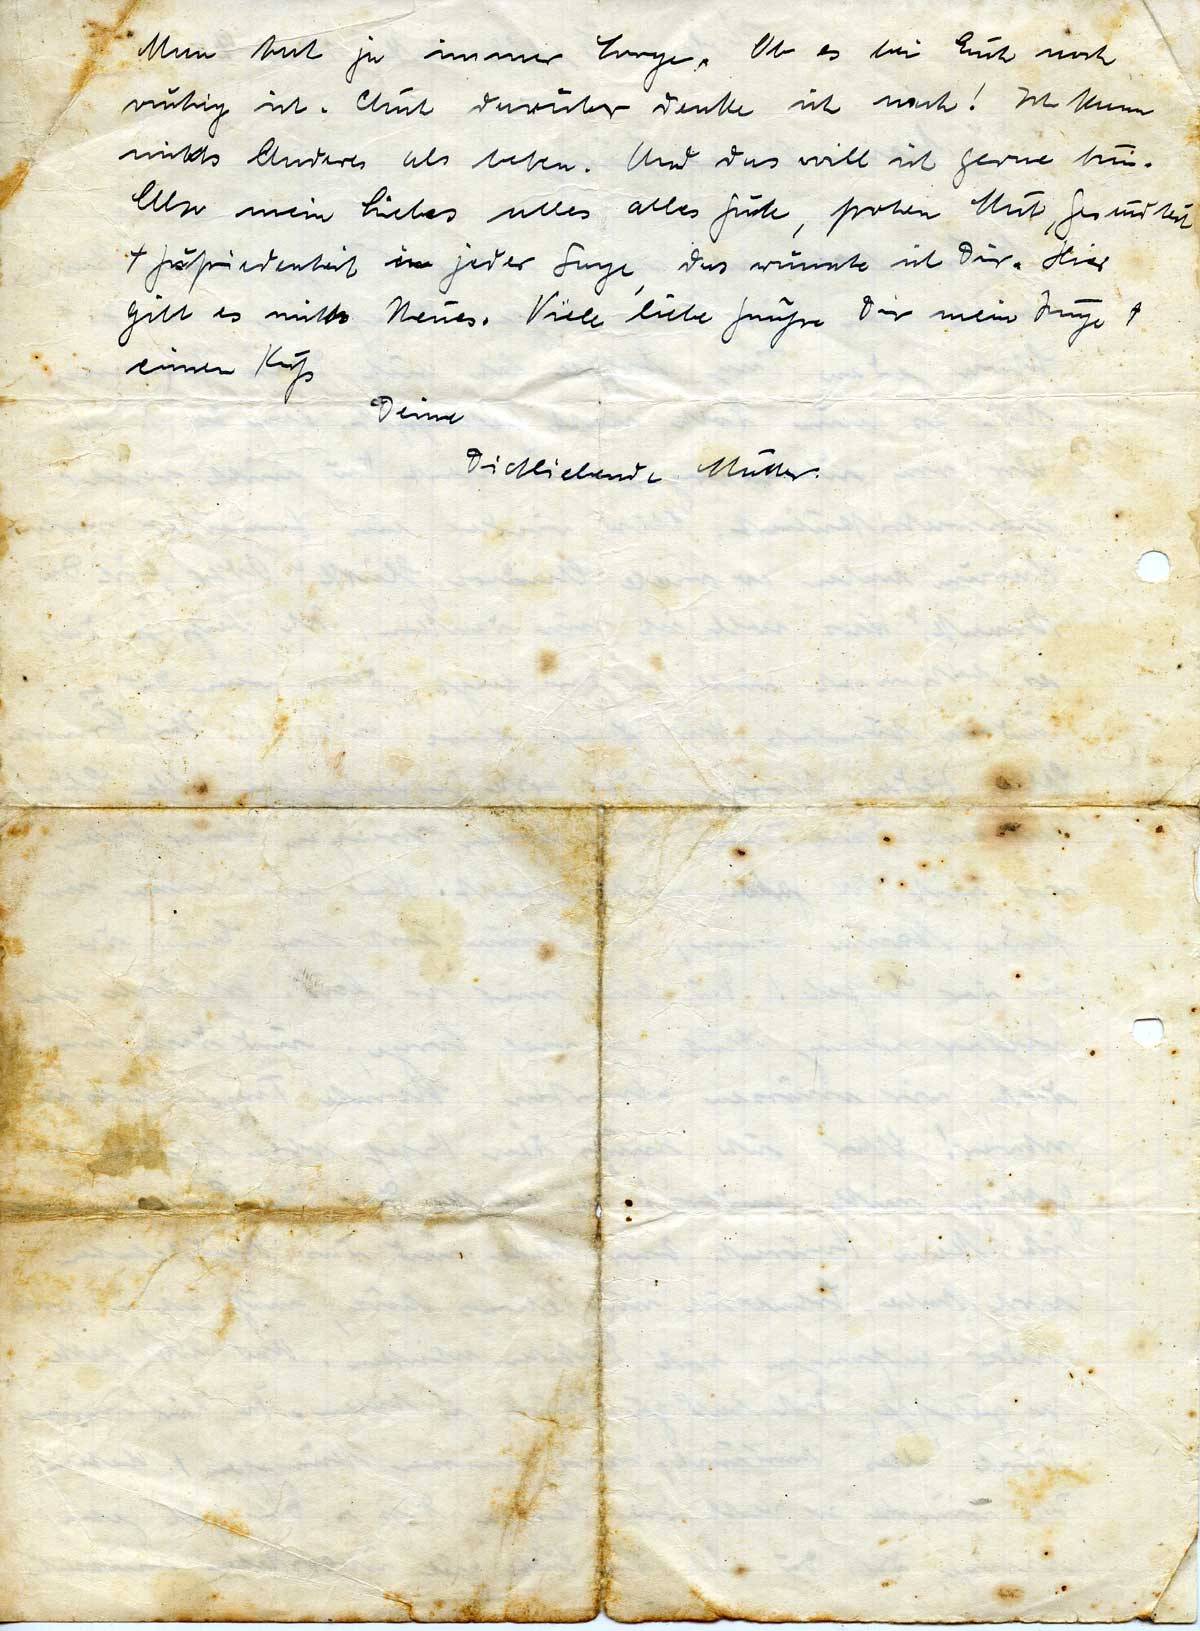 Man hat ja immer Sorge. Ob es bei Euch noch
ruhig ist. Auch darüber denke ich nach! Ich kann
nichts Anderes als beten. Und das will ich gerne tun.
Also mein Liebes alles alles Gute, frohen Mut, Gesundheit
+ Zufriedenheit in jeder Lage, das wünsche ich Dir. Hier
gibt es nichts Neues. Viele liebe Grüße Dir mein Junge +
einen Kuß
Deine
Dichliebende Mutter.